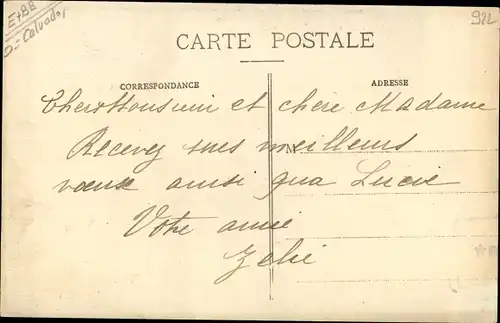 E+BE
D= Calvados
922
CARTE POSTALE
CORRESPONDANCE
ADRESSE
Cher Monsieur et chère Madame
Recevez mes meilleurs
M
voeux ainsi qua Lucie
Votre amie
Zélie